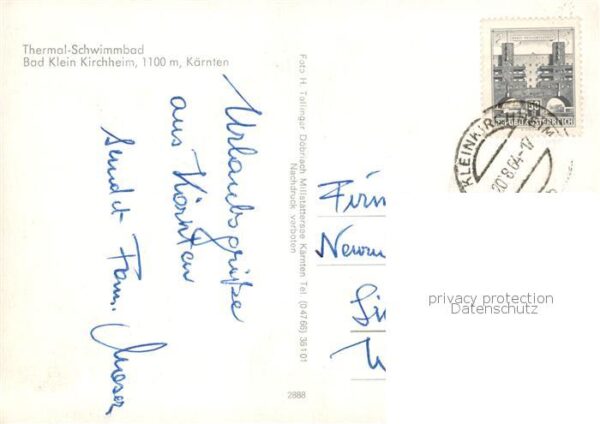 Thermal-Schwimmbad
Bad Klein Kirchheim, 1100 m, Kärnten
Urlaubsgrüße
aus Kärnten
sendet Fam. Moser
Foto H. Tollinger Döbriach Millstättersee Kärnten Tel. (04766) 36101
Nachdruck verboten
2888
REPUBLIK ÖSTERREICH
KLEINKIRCHHEIM
20.8.64-17
Firm
privacy protection
Datenschutz